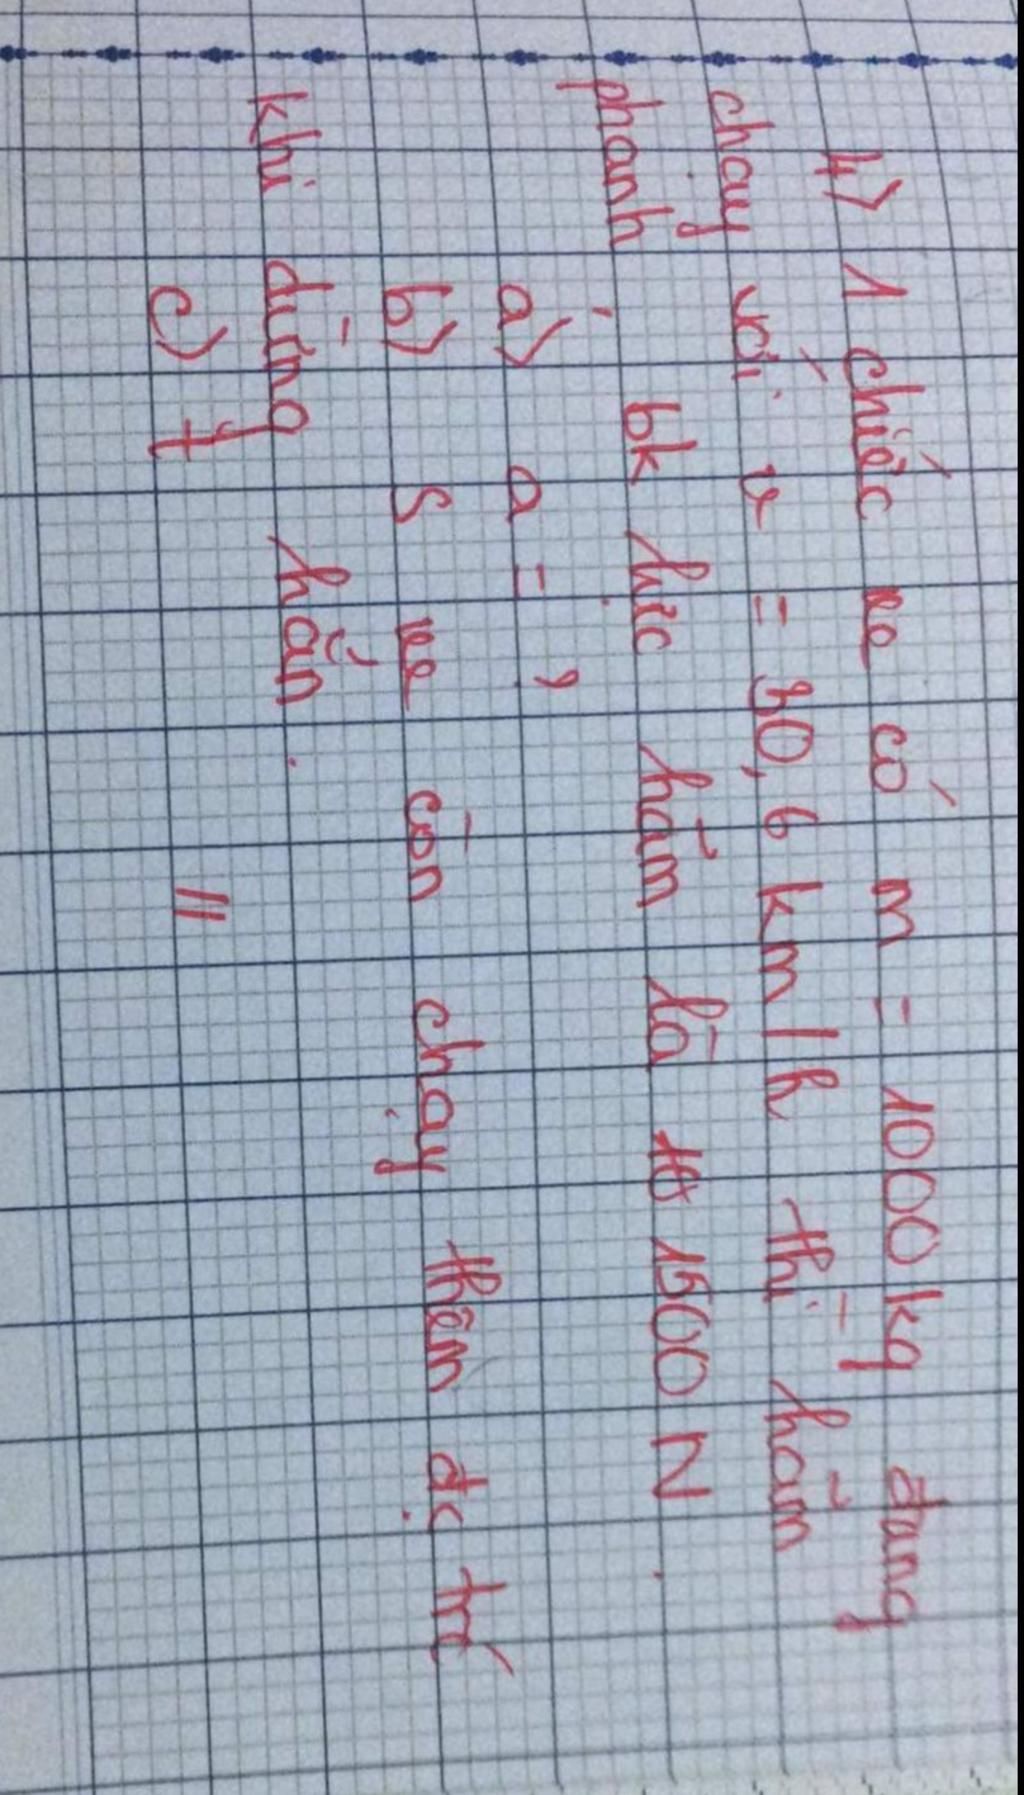 4) 1 chiếc xe có m = 1000kg đang
chạy với v = 30,6 km/h thì hãm
phanh bk lực hãm là 1500 N.
a) a = ?
b) S xe còn chạy thêm đc trc
khi dừng hẳn.
c) t //